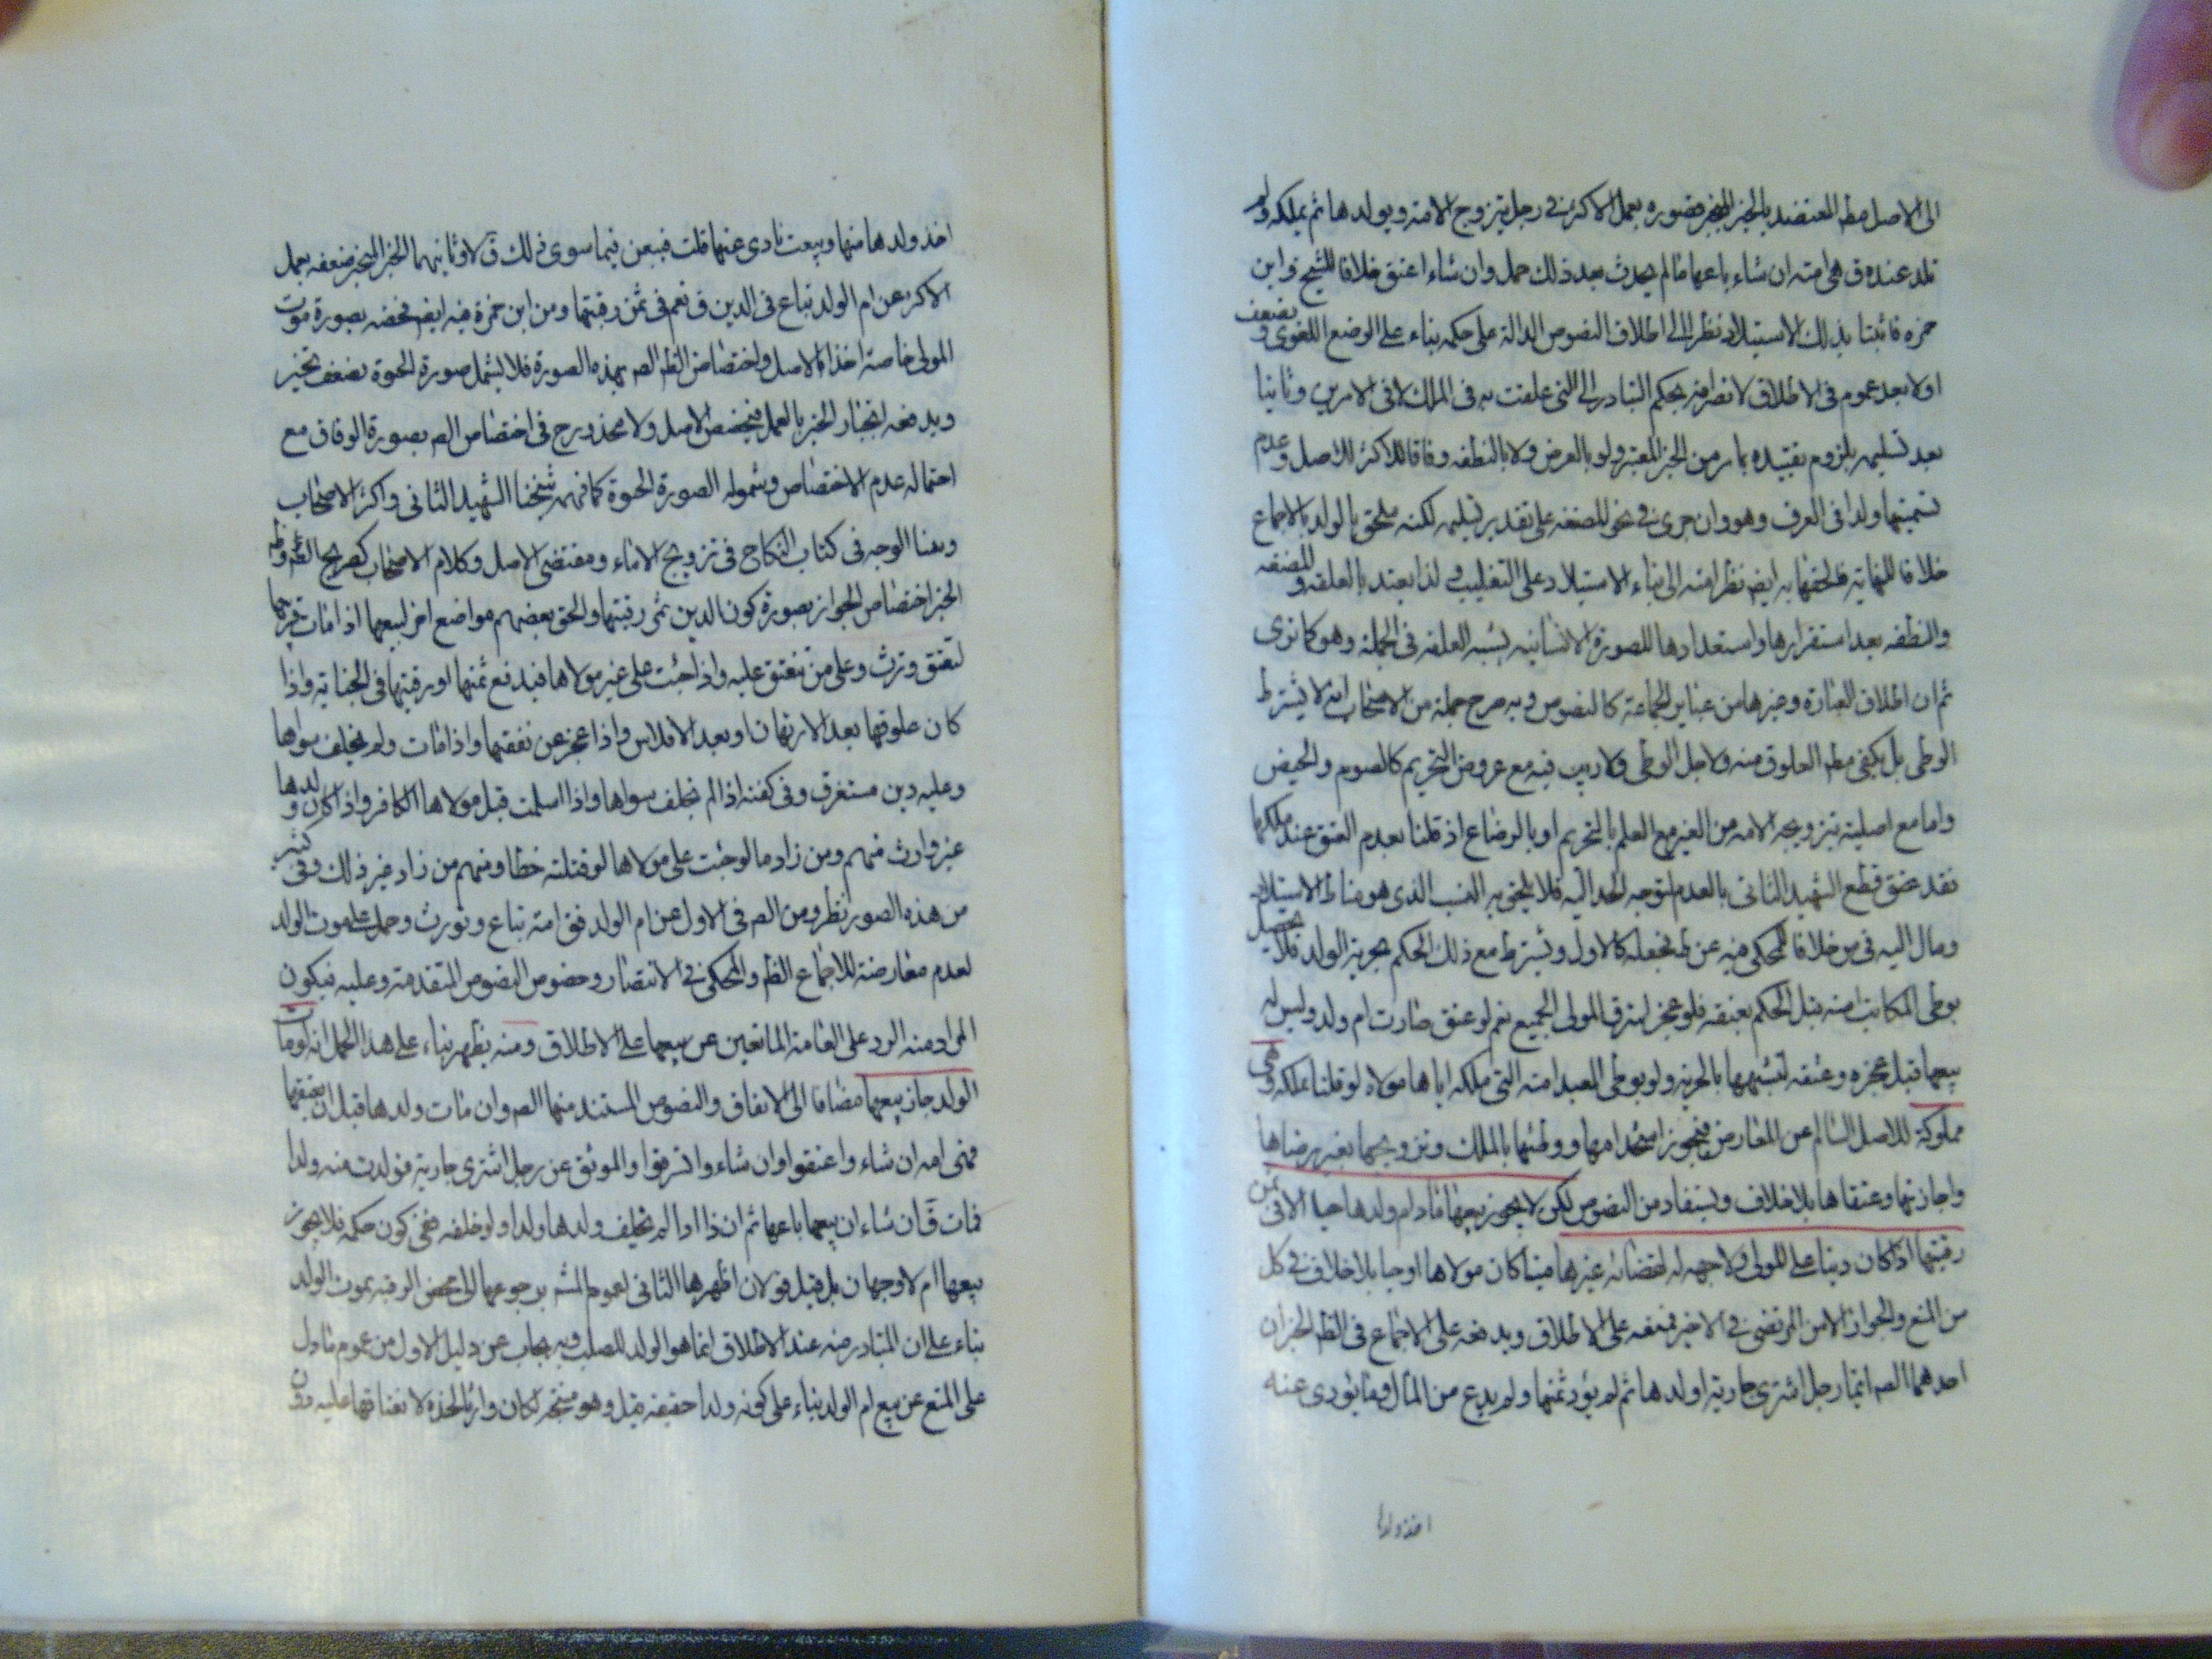 الى الاصل مط المعتضد بالخبر المنجبر قصوره بعمل الاكثر في رجل يتزوج الامة ويولدها ثم يملكها ولم
تلد عنده ق هي امته ان شاء باعها ما لم يحدث بعد ذلك حمل وان شاء اعتق خلافا للشيخ وابن
حمزه فاثبتا بذلك الاستيلاد نظرا الى اطلاق النصوص الدالة على حكمه بناء على الوضع اللغوى ويضعف
اولا بعد عموم فى الاطلاق لانصرافه بحكم التبادر الى التى علقت به فى الملك لا فى الامرين وثانيا
بعد تسليمه بلزوم تقييده بما مر من الخبر المعتبر ولو بالعرض ولا بالنطفه وفاقا للاكثر للاصل وعدم
تسميتها ولدا فى العرف وهو وان جرى في نحو المضغه على تقدير تسليمه لكنه ملحق بالولد بالاجماع
خلافا للنهاية فالحقها به ايض نظرا منه الى بناء الاستيلاد على التغليب ولذا يعتد بالعلقه والمضغه
والنطفه بعد استقرارها واستعدادها للصورة الانسانيه يشبه العلقه فى الجملة وهو كما ترى
ثم ان اطلاق العبارة وغيرها من عباير الجماعة كالنصوص وبه صرح جملة من الاصحاب انه لا يشترط
الوطى بل يكفى مط العلوق منه ولا حل الوطى ولا ريب فيه مع عروض التحريم كالصوم والحيض
واما مع اصليته بتزويجه الامه من الغير مع العلم بالتحريم او بالرضاع اذ قلنا بعدم العتق عند ملكها
فقد عن ف قطع الشهيد الثانى بالعدم لتوجه الحد اليه فلا يلحق به النسب الذى هو مناط الاستيلاد
ومال اليه فى س خلافا للمحكى فيه عن ط فجعله كالاول ويشترط مع ذلك الحكم بحرية الولد فلا يحصل
بوطى المكاتب امته قبل الحكم بعتقه فلو عجز استرق المولى الجميع نعم لو عتق صارت ام ولد وليس له
بيعها قبل عجزه وعتقه لتشبهها بالحرية ولو بوطى العبد امته التى ملكه اياها مولاه لو قلنا بملكه وهى
مملوكة للاصل السالم عن المعارض فيجوز استخدامها ووطئها بالملك وتزويجها بغير رضاها
واجازتها وعتقها بلا خلاف ويستفاد من النصوص لكن لا يجوز بيعها ما دام ولدها حيا الا فى ثمن
رقبتها اذا كان دينا على المولى ولا جهه له لقضائه غيرها ميتا كان مولاها او حيا بلا خلاف في كل
من المنع والجواز الا من المرتضى في الاخير فمنعه على الاطلاق ويدفعه على الاجماع فى الظ الخبران
احدهما الص ايما رجل اشترى جارية اولدها ثم لم يؤد ثمنها ولم يدع من المال ما يؤدى عنه
اخذ ولدها
اخذ ولدها منها وبيعت فادى عنها قلت فيبعن فيما سوى ذلك ق لا وثانيهما الخبر المنجبر ضعفه بعمل
الاكثر عن ام الولد تباع فى الدين ق نعم فى ثمن رقبتها ومن ابن حمزة فيه ايض فخصه بصورة موت
المولى خاصة اخذا بالاصل واختصاص الظ الص بهذه الصورة فلا يشمل صورة الحيوة بضعف الخبر
ويدفعه انجبار الخبر بالعمل فيخصص الاصل ولا محذور ح فى اختصاص الص بصورة الوفاة مع
احتماله عدم الاختصاص وشموله الصورة الحيوة كما فهمه شيخنا الشهيد الثانى واكثر الاصحاب
وبينا الوجه فى كتاب النكاح فى تزويج الاماء ومقتضى الاصل وكلام الاصحاب كصريح الص وظ
الخبر اختصاص الجواز بصورة كون الدين ثمن رقبتها والحق بعضهم مواضع اخر لبيعها اذا مات قريبها
لتعتق وترث وعلى من تنعتق عليه واذا جنت على غير مولاها فيدفع ثمنها او رقبتها فى الجناية واذا
كان علوقها بعد الارتهان او بعد الافلاس واذا عجز عن نفقتها واذا مات ولم يخلف سواها
وعليه دين مستغرق وفى كفنه اذا لم يخلف سواها واذا اسلمت قبل مولاها الكافر واذا كان ولدها
غير وارث منهم ومن زاد ما لو جنت على مولاها لو قتلته خطا ومنهم من زاد غير ذلك وفى كثير
من هذه الصور نظر ومن الص فى الاول عن ام الولد فق امة تباع وتورث وحمل على موت الولد
لعدم معارضة للاجماع الظ والمحكى في الانتصار وخصوص النصوص المتقدمة وعليه فيكون
المراد منه الرد على العامة المانعين عن بيعها على الاطلاق ومنه يظهر بناء على هذا الحمل انه لو مات
الولد جاز بيعها مضافا الى الاتفاق والنصوص المستند منها الص وان مات ولدها قبل ان يعتقها
فهى امه ان شاءوا اعتقوا وان شاءوا استرقوا والموثق عن رجل اشترى جارية فولدت منه ولدا
فمات ق ان شاء ان يبيعها باعها ثم ان ذا اذا لم يخلف ولدها ولدا ولو خلفه ففى كون حكمه فلا يجوز
بيعها ام لا وجهان بل قيل قولان اظهرها الثانى لعموم المش برجوعها الى محض الرقيه بموت الولد
بناء على ان المتبادر منه عند الاطلاق انما هو الولد للصلب وبه يجاب عن دليل الاول من عموم ما دل
على المنع عن بيع ام الولد بناء على كونه ولدا حقيقه وقيل وهو متجه ان كان وارثا لجده لانعتاقها عليه